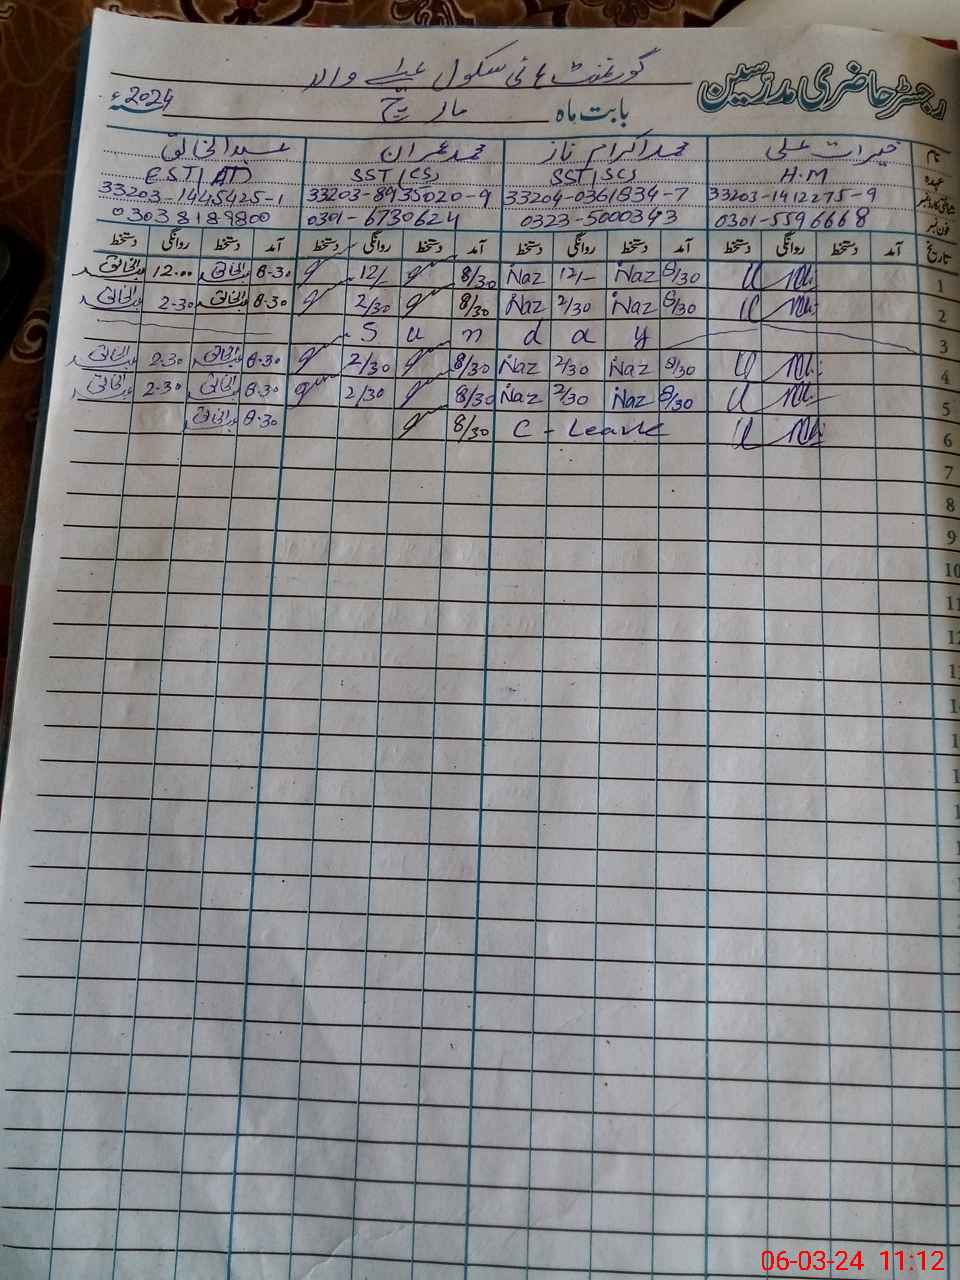 رجسٹر حاضری مدرسین گورنمنٹ ہائی سکول والہ
بابت ماہ مارچ 2024ء
نام خیرات علی محمد اکرام ناز محمد عمران عبدالخالق
عہدہ H.M SST(Sc) SST(CS) EST(AT)
شناختی کارڈ نمبر 33203-1412275-9 33204-0361834-7 33203-8935020-9 33203-1445425-1
فون نمبر 0301-5596668 0323-5000343 0301-6730624 03038189800
تاریخ آمد دستخط روانگی دستخط آمد دستخط روانگی دستخط آمد دستخط روانگی دستخط آمد دستخط روانگی دستخط
1 8/30 Naz 12/- Naz 8/30 12/- 8.30 عبدالخالق 12.00 عبدالخالق
2 8/30 Naz 2/30 Naz 8/30 2/30 8.30 عبدالخالق 2.30 عبدالخالق
3 Sunday
4 8/30 Naz 2/30 Naz 8/30 2/30 8.30 عبدالخالق 2.30 عبدالخالق
5 8/30 Naz 2/30 Naz 8/30 2/30 8.30 عبدالخالق 2.30 عبدالخالق
6 C - Leave 8/30 8.30 عبدالخالق
7
8
9
10
11
12
06-03-24 11:12